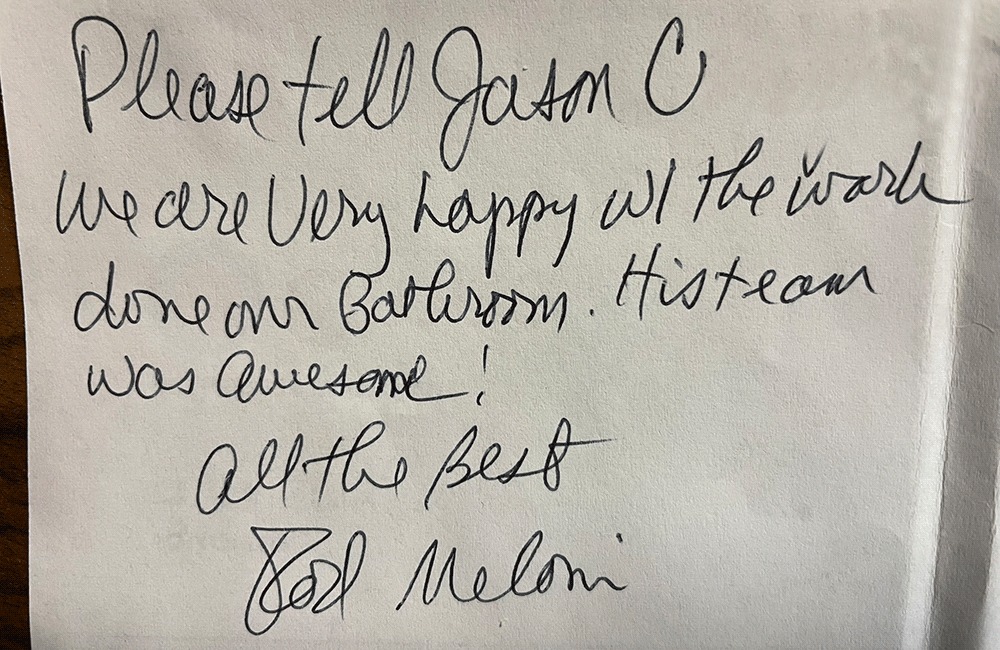 Please tell Jason C
We are Very happy w/ the work
done our Bathroom. His team
was awesome!
All the Best
Rod Meloni